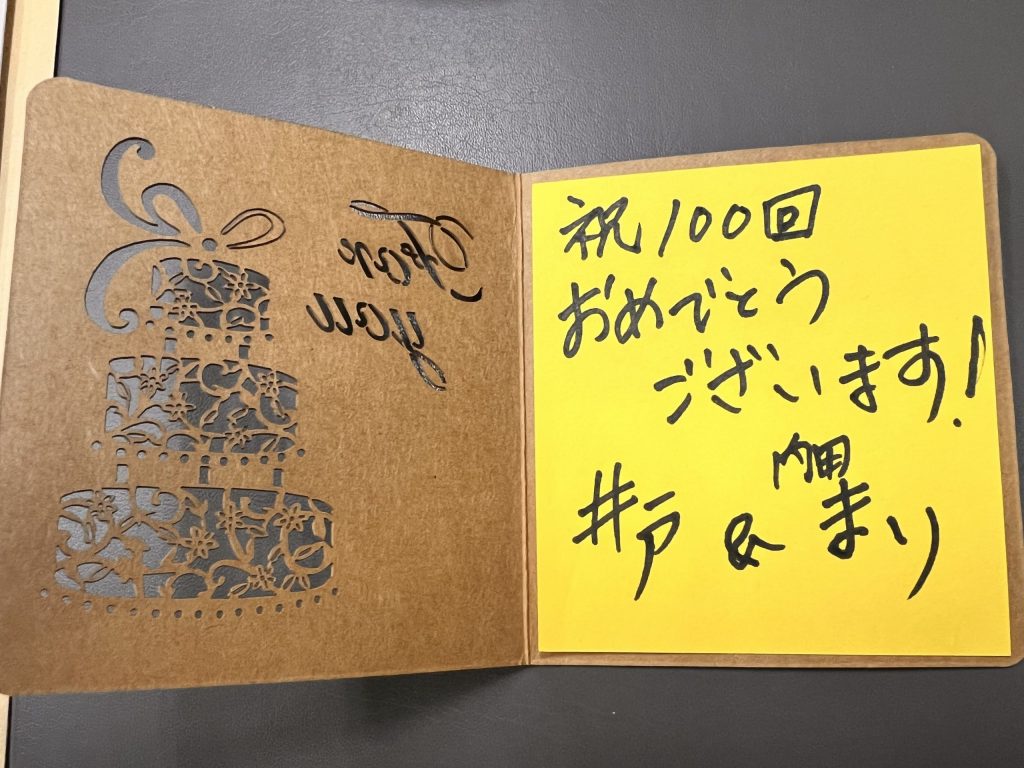 For
you
祝100回
おめでとう
ございます!
内田
井戸 & まり